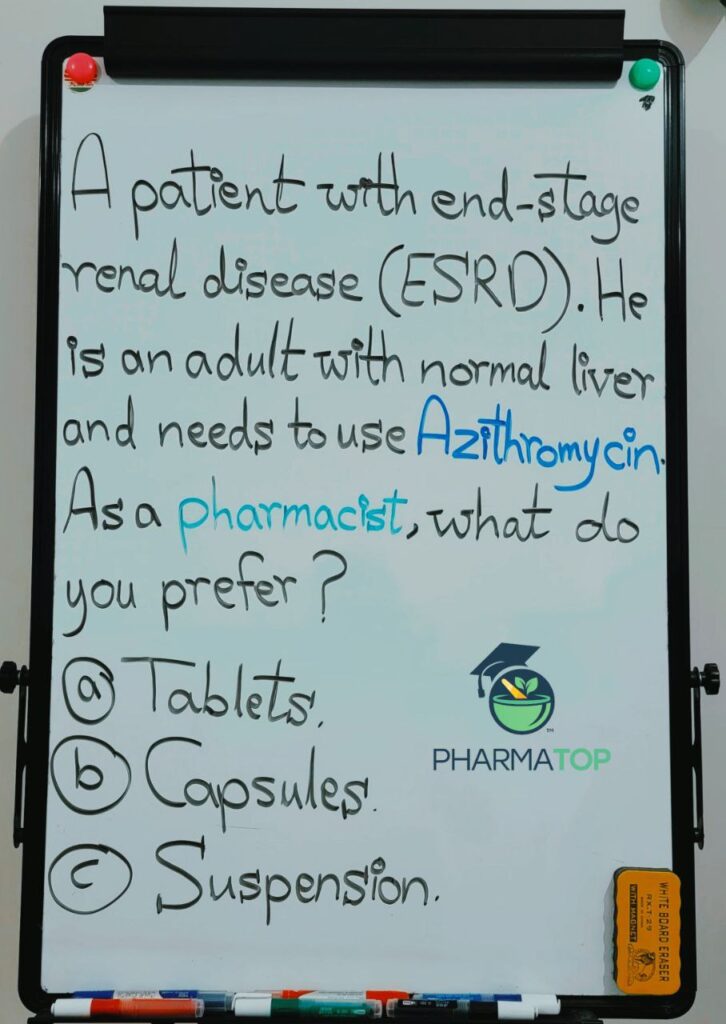 A patient with end-stage
renal disease (ESRD). He
is an adult with normal liver
and needs to use Azithromycin.
As a pharmacist, what do
you prefer?
a Tablets.
b Capsules.
c Suspension.
PHARMATOP
TM
WHITE BOARD ERASER
RX.T-29
WITH MAGNET